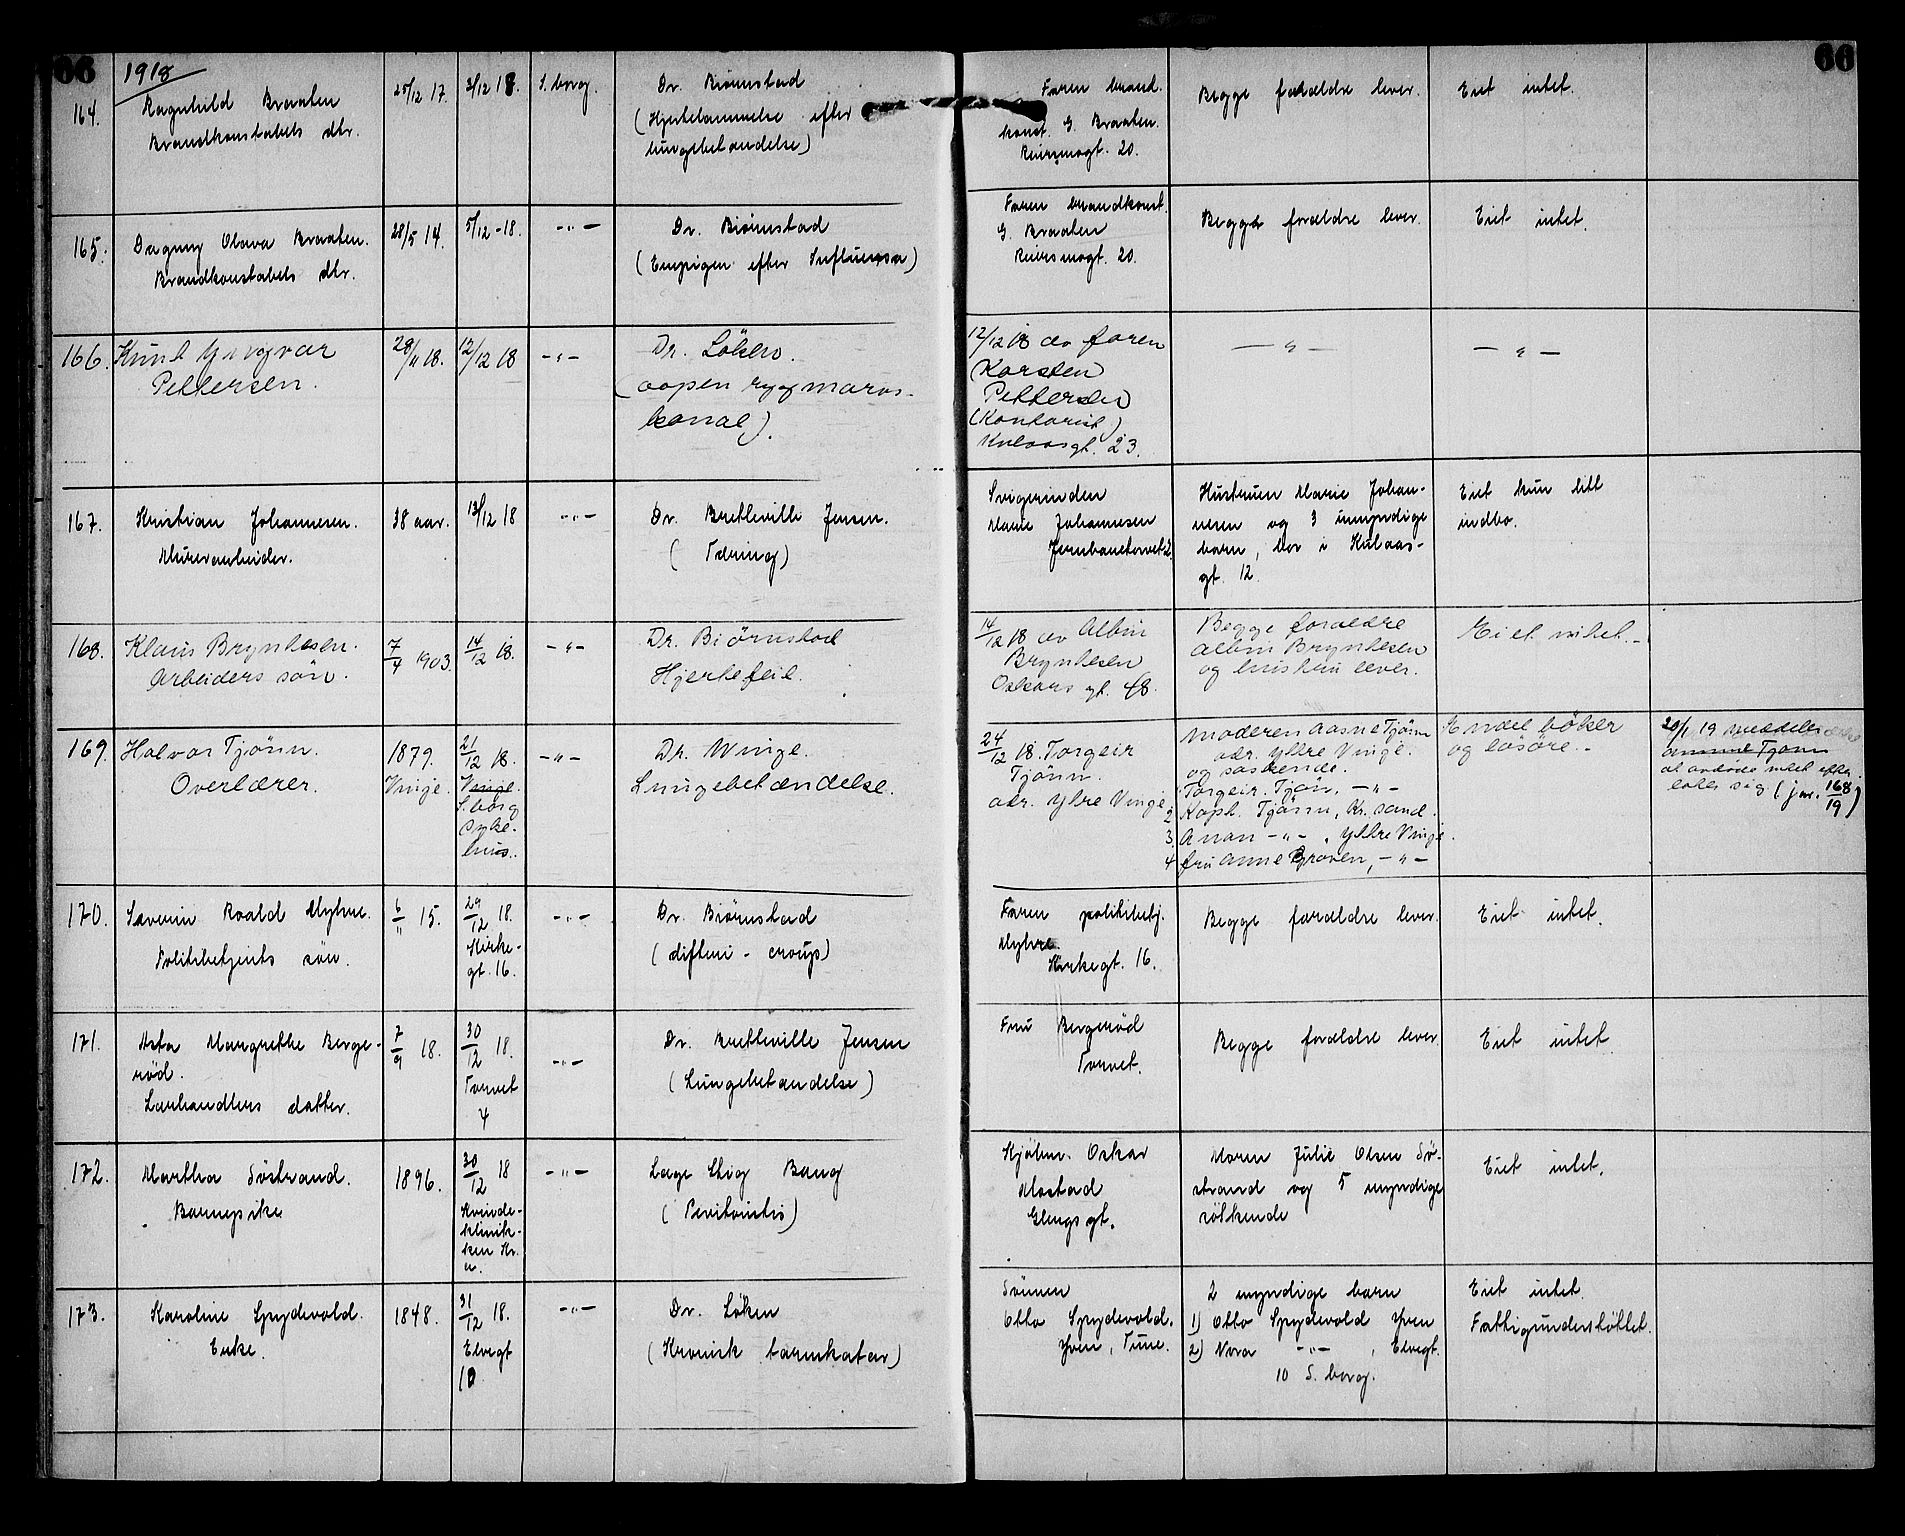 66
66
1918
164.
Ragnhild Braaten
Brandkonstabels dtr.
25/12 17.
3/12 18.
S. borg.
Dr. Biørnstad
(Hjertelammelse efter
lungebetændelse)
Faren brand.
konst. G. Braaten.
20.
Begge forældre lever.
Eiet intet.
165.
Dagny Olava Braaten.
Brandkonstabels dtr.
28/5 14.
5/12 - 18.
-"-
Dr. Biørnstad
(Empigen efter Influensa)
Faren brandkonst.
G. Braaten
20.
Begge forældre lever.
Eiet intet.
166.
Knut Yngvar
Pettersen.
28/11 18.
12/12 18
-"-
Dr. Löken.
(aapen rygmarvs-
kanal).
12/12 18 av faren
(Karsten
Pettersen
(Kontorist)
Kulaasgt. 23.
-"-
-"-
167.
Kristian Johannesen.
Murerarbeider.
38 aar.
13/12 18
-"-
Dr. Bretteville Jensen.
(Tæring)
Svigerinden
Marie Johannesen
Jernbanetorvet 2.
Hustruen Marie Johan-
nesen og 3 umyndige
barn, bor i Kulaas-
gt. 12.
Eiet kun litt
indbo.
168.
Klaus Bryntesen.
Arbeiders sön.
7/4 1903.
14/12 18.
-"-
Dr. Biörnstad
Hjertefeil.
14/12 18 av Albin
Bryntesen
Oskars gt. 48.
Begge foraldre
Albin Bryntesen
og hustru lever.
Eiet intet.-
169.
Halvor Tjönn.
Overlærer.
1879.
Vinje.
21/12 18.
Vinje.
S.borg
syke-
hus.
-"-
Dr. Winge.
Lungebetændelse.
24/12 18. Torgeir
Tjönn.
adr. Ytre Vinje
Moderen Aasne Tjönn
adr. Yttre Vinje.
og söskende.
Torgeir. Tjön, -"-
2 Kapt. Tjönn, Kr. sand.
3. Anan -"-, Yttre Vinje.
4 fru Anne Gröven, -"-
En del böker
og lösöre.-
20/1 19 meddeler
Tjönn
at avdöde intet efter
later sig (jnr. 168/19)
170.
Severin Roald Myhre.
Politibetjents sön.
6/11 15.
29/12 18.
Kirke-
gt. 16.
-"-
Dr. Biörnstad
(difteri - croup)
Faren politibetj.
Myhre
Kirkegt. 16.
Begge forældre lever.
Eiet intet.
171.
Asta Margrethe Berge-
röd.
Lærhandlers datter.
7/9 18.
30/12 18.
Torvet
4
-"-
Dr. Bretteville Jensen
(Lungebetændelse)
Fru Bergeröd
Torvet.
Begge forældre lever
Eiet intet
172.
Martha Söstrand.
Barnepike
1896.
30/12 18
Kvinde-
klinik-
ken Kr.
a.
-"-
Læge Stig Bang
(Peritonitis)
Kjöbm. Oskar
Mostad
Glengsgt.
Moren Julie Olsen Sö-
strand og 5 myndige
söskende
Eiet intet.
173.
Karoline Spydevold.
Enke.
1848.
31/12 18.
Elvegt
10
-"-
Dr. Löken
(Kronisk tarmkatar)
Sönnen
Otto Spydevold.
Yven, Tune.
2 myndige barn
1) Otto Spydevold Yven
2) Nora -"-, Elvegt.
10 S. borg.
Eiet intet.
Fattigunderstöttet.